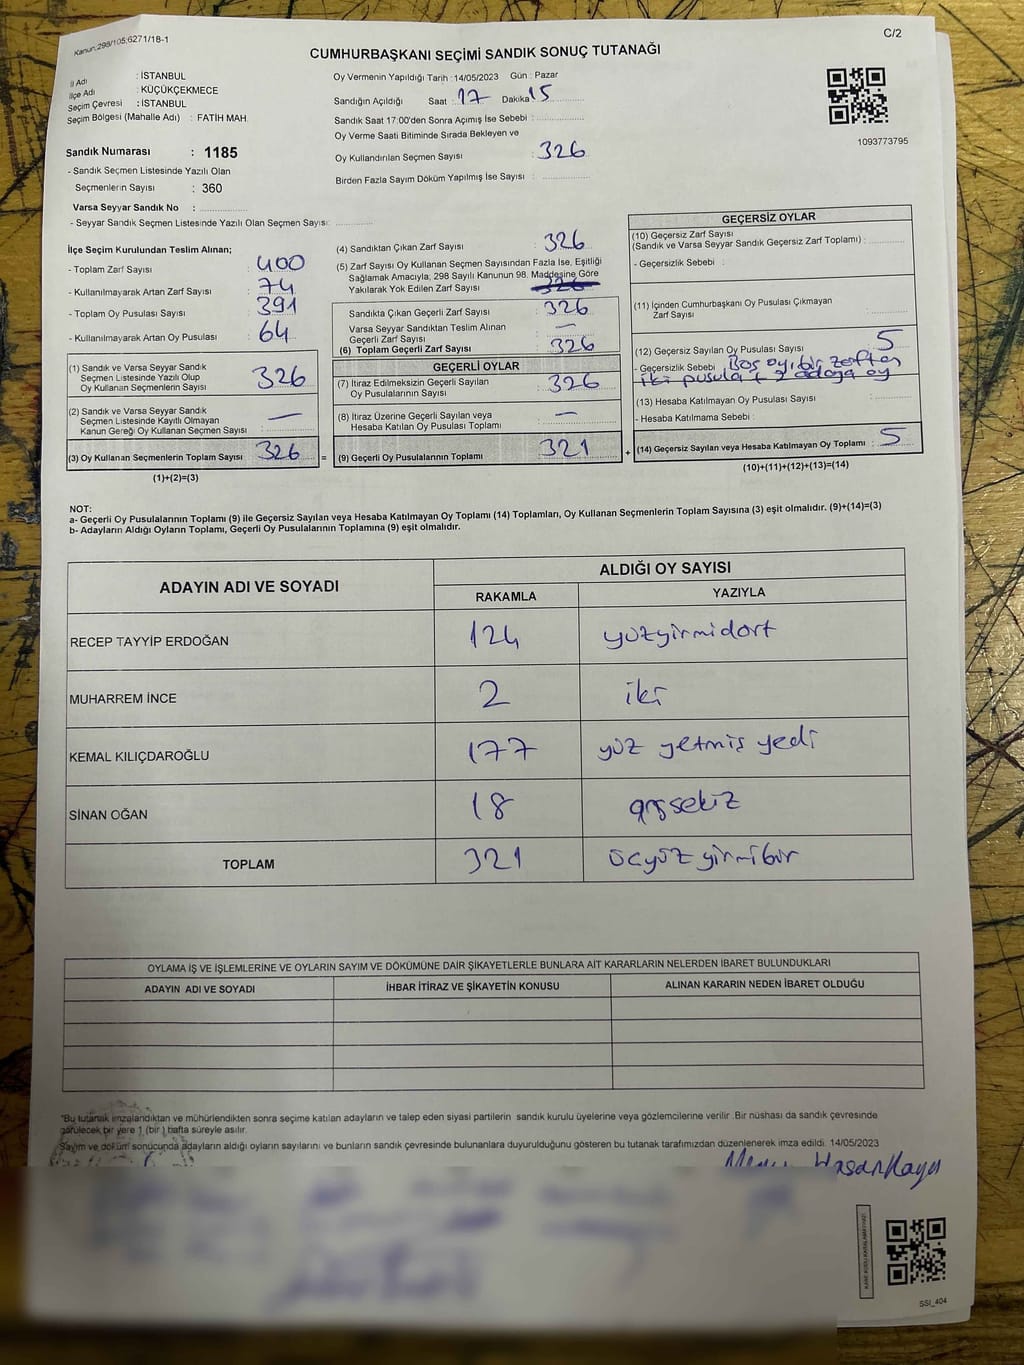 Kanun;298/105;6271/18-1
C/2
CUMHURBAŞKANI SEÇİMİ SANDIK SONUÇ TUTANAĞI
İl Adı : İSTANBUL
İlçe Adı : KÜÇÜKÇEKMECE
Seçim Çevresi : İSTANBUL
Seçim Bölgesi (Mahalle Adı) : FATİH MAH.
Oy Vermenin Yapıldığı Tarih : 14/05/2023 Gün : Pazar
Sandığın Açıldığı Saat : 17 Dakika 15
Sandık Saat 17:00'den Sonra Açımış İse Sebebi :
Oy Verme Saati Bitiminde Sırada Bekleyen ve
Oy Kullandırılan Seçmen Sayısı : 326
Birden Fazla Sayım Döküm Yapılmış İse Sayısı :
1093773795
Sandık Numarası : 1185
- Sandık Seçmen Listesinde Yazılı Olan
Seçmenlerin Sayısı : 360
Varsa Seyyar Sandık No :
- Seyyar Sandık Seçmen Listesinde Yazılı Olan Seçmen Sayısı:
İlçe Seçim Kurulundan Teslim Alınan;
- Toplam Zarf Sayısı : 400
- Kullanılmayarak Artan Zarf Sayısı : 74
- Toplam Oy Pusulası Sayısı : 391
- Kullanılmayarak Artan Oy Pusulası : 64
(1) Sandık ve Varsa Seyyar Sandık
Seçmen Listesinde Yazılı Olup
Oy Kullanan Seçmenlerin Sayısı : 326
(2) Sandık ve Varsa Seyyar Sandık
Seçmen Listesinde Kayıtlı Olmayan
Kanun Gereği Oy Kullanan Seçmen Sayısı : —
(3) Oy Kullanan Seçmenlerin Toplam Sayısı : 326 =
(1)+(2)=(3)
(4) Sandıktan Çıkan Zarf Sayısı : 326
(5) Zarf Sayısı Oy Kullanan Seçmen Sayısından Fazla İse, Eşitliği
Sağlamak Amacıyla, 298 Sayılı Kanunun 98. Maddesine Göre
Yakılarak Yok Edilen Zarf Sayısı : 326
Sandıkta Çıkan Geçerli Zarf Sayısı : 326
Varsa Seyyar Sandıktan Teslim Alınan
Geçerli Zarf Sayısı : —
(6) Toplam Geçerli Zarf Sayısı : 326
GEÇERLİ OYLAR
(7) İtiraz Edilmeksizin Geçerli Sayılan
Oy Pusulalarının Sayısı : 326
(8) İtiraz Üzerine Geçerli Sayılan veya
Hesaba Katılan Oy Pusulası Toplamı : —
(9) Geçerli Oy Pusulalarının Toplamı : 321 +
GEÇERSİZ OYLAR
(10) Geçersiz Zarf Sayısı
(Sandık ve Varsa Seyyar Sandık Geçersiz Zarf Toplamı) :
- Geçersizlik Sebebi :
(11) İçinden Cumhurbaşkanı Oy Pusulası Çıkmayan
Zarf Sayısı :
(12) Geçersiz Sayılan Oy Pusulası Sayısı : 5
- Geçersizlik Sebebi : Boş oy, bir zarftan
iki pusula, 2 adaya oy
(13) Hesaba Katılmayan Oy Pusulası Sayısı :
- Hesaba Katılmama Sebebi :
(14) Geçersiz Sayılan veya Hesaba Katılmayan Oy Toplamı : 5
(10)+(11)+(12)+(13)=(14)
NOT:
a- Geçerli Oy Pusulalarının Toplamı (9) ile Geçersiz Sayılan veya Hesaba Katılmayan Oy Toplamı (14) Toplamları, Oy Kullanan Seçmenlerin Toplam Sayısına (3) eşit olmalıdır. (9)+(14)=(3)
b- Adayların Aldığı Oyların Toplamı, Geçerli Oy Pusulalarının Toplamına (9) eşit olmalıdır.
ADAYIN ADI VE SOYADI
ALDIĞI OY SAYISI
RAKAMLA YAZIYLA
RECEP TAYYİP ERDOĞAN 124 yüzyirmidört
MUHARREM İNCE 2 iki
KEMAL KILIÇDAROĞLU 177 yüz yetmiş yedi
SİNAN OĞAN 18 onsekiz
TOPLAM 321 üçyüz yirmibir
OYLAMA İŞ VE İŞLEMLERİNE VE OYLARIN SAYIM VE DÖKÜMÜNE DAİR ŞİKAYETLERLE BUNLARA AİT KARARLARIN NELERDEN İBARET BULUNDUKLARI
ADAYIN ADI VE SOYADI İHBAR İTİRAZ VE ŞİKAYETİN KONUSU ALINAN KARARIN NEDEN İBARET OLDUĞU
*Bu tutanak imzalandıktan ve mühürlendikten sonra seçime katılan adayların ve talep eden siyasi partilerin sandık kurulu üyelerine veya gözlemcilerine verilir .Bir nüshası da sandık çevresinde
görülecek bir yere 1 (bir) hafta süreyle asılır.
Sayım ve döküm sonucunda adayların aldığı oyların sayılarını ve bunların sandık çevresinde bulunanlara duyurulduğunu gösteren bu tutanak tarafımızdan düzenlenerek imza edildi. 14/05/2023
SSİ_404